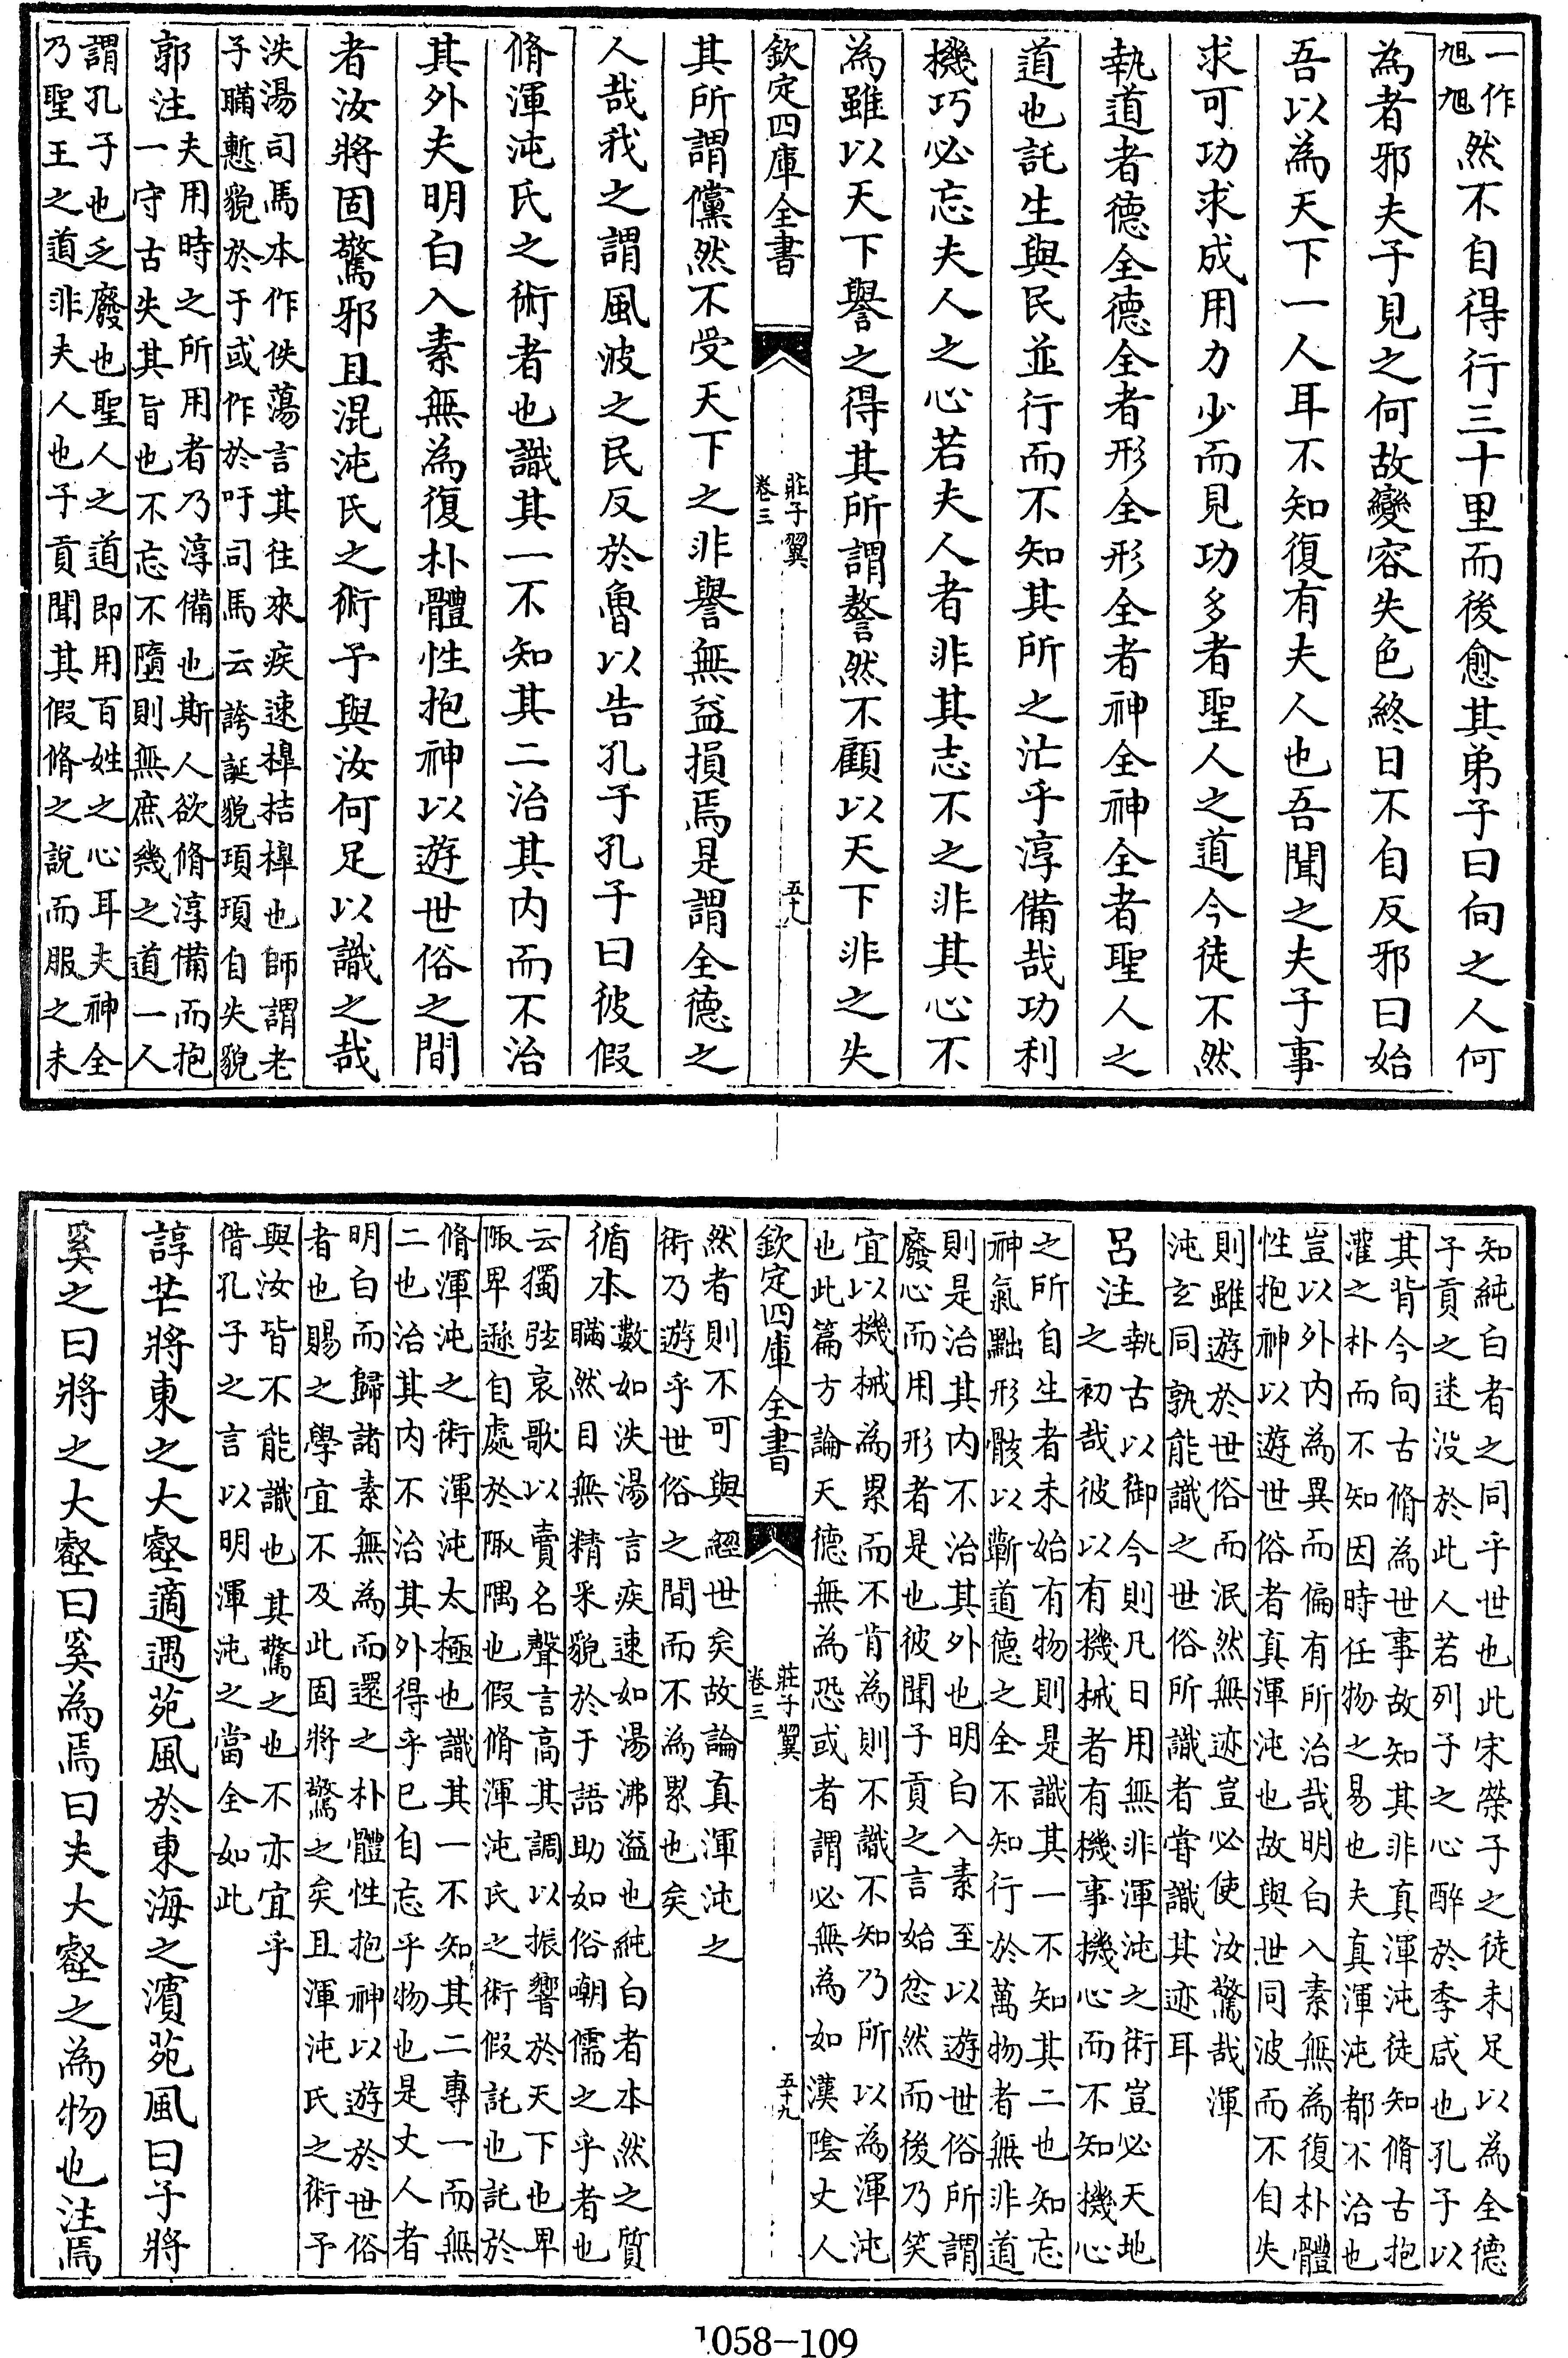 一作
旭旭
然不自得行三十里而後愈其弟子曰向之人何
為者邪夫子見之何故變容失色終日不自反邪曰始
吾以為天下一人耳不知復有夫人也吾聞之夫子事
求可功求成用力少而見功多者聖人之道今徒不然
執道者德全德全者形全形全者神全神全者聖人之
道也託生與民並行而不知其所之汒乎淳備哉功利
機巧必忘夫人之心若夫人者非其志不之非其心不
為雖以天下譽之得其所謂謷然不顧以天下非之失
欽定四庫全書
莊子翼
卷三
五十九
其所謂儻然不受天下之非譽無益損焉是謂全德之
人哉我之謂風波之民反於魯以告孔子孔子曰彼假
脩渾沌氏之術者也識其一不知其二治其內而不治
其外夫明白入素無為復朴體性抱神以遊世俗之間
者汝將固驚邪且混沌氏之術予與汝何足以識之哉
泆湯司馬本作佚蕩言其往來疾速橰拮橰也師謂老
子瞞慙貌於于或作於吁司馬云誇誕貌頊頊自失貌
郭注
夫用時之所用者乃淳備也斯人欲脩淳備而抱
一守古失其旨也不忘不墮則無庶幾之道一人
謂孔子也乏廢也聖人之道即用百姓之心耳夫神全
乃聖王之道非夫人也子貢聞其假脩之說而服之未
知純白者之同乎世也此宋榮子之徒未足以為全德
子貢之迷没於此人若列子之心醉於季咸也孔子以
其背今向古脩為世事故知其非真渾沌徒知脩古抱
灌之朴而不知因時任物之易也夫真渾沌都不治也
豈以外內為異而偏有所治哉明白入素無為復朴體
性抱神以遊世俗者真渾沌也故與世同波而不自失
則雖遊於世俗而泯然無迹豈必使汝驚哉渾
沌玄同孰能識之世俗所識者嘗識其迹耳
呂注
執古以御今則凡日用無非渾沌之術豈必天地
之初哉彼以有機械者有機事機心而不知機心
之所自生者未始有物則是識其一不知其二也知忘
神氣黜形骸以蘄道德之全不知行於萬物者無非道
則是治其內不治其外也明白入素至以遊世俗所謂
廢心而用形者是也彼聞子貢之言始忿然而後乃笑
宜以機械為累而不肯為則不識不知乃所以為渾沌
也此篇方論天德無為恐或者謂必無為如漢陰丈人
欽定四庫全書
莊子翼
卷三
五十九
然者則不可與經世矣故論真渾沌之
術乃遊乎世俗之間而不為累也矣
循本
數如泆湯言疾速如湯沸溢也純白者本然之質
瞞然目無精采貌於于語助如俗嘲儒之乎者也
云獨弦哀歌以賣名聲言高其調以振響於天下也卑
陬卑遜自處於陬隅也假脩渾沌氏之術假託也託於
脩渾沌之術渾沌太極也識其一不知其二專一而無
二也治其內不治其外得乎已自忘乎物也是丈人者
明白而歸諸素無為而還之朴體性抱神以遊於世俗
者也賜之學宜不及此固將驚之矣且渾沌氏之術予
與汝皆不能識也其驚之也不亦宜乎
借孔子之言以明渾沌之當全如此
諄芒將東之大壑適遇苑風於東海之濱苑風曰子將
奚之曰將之大壑曰奚為焉曰夫大壑之為物也注焉
1058-109